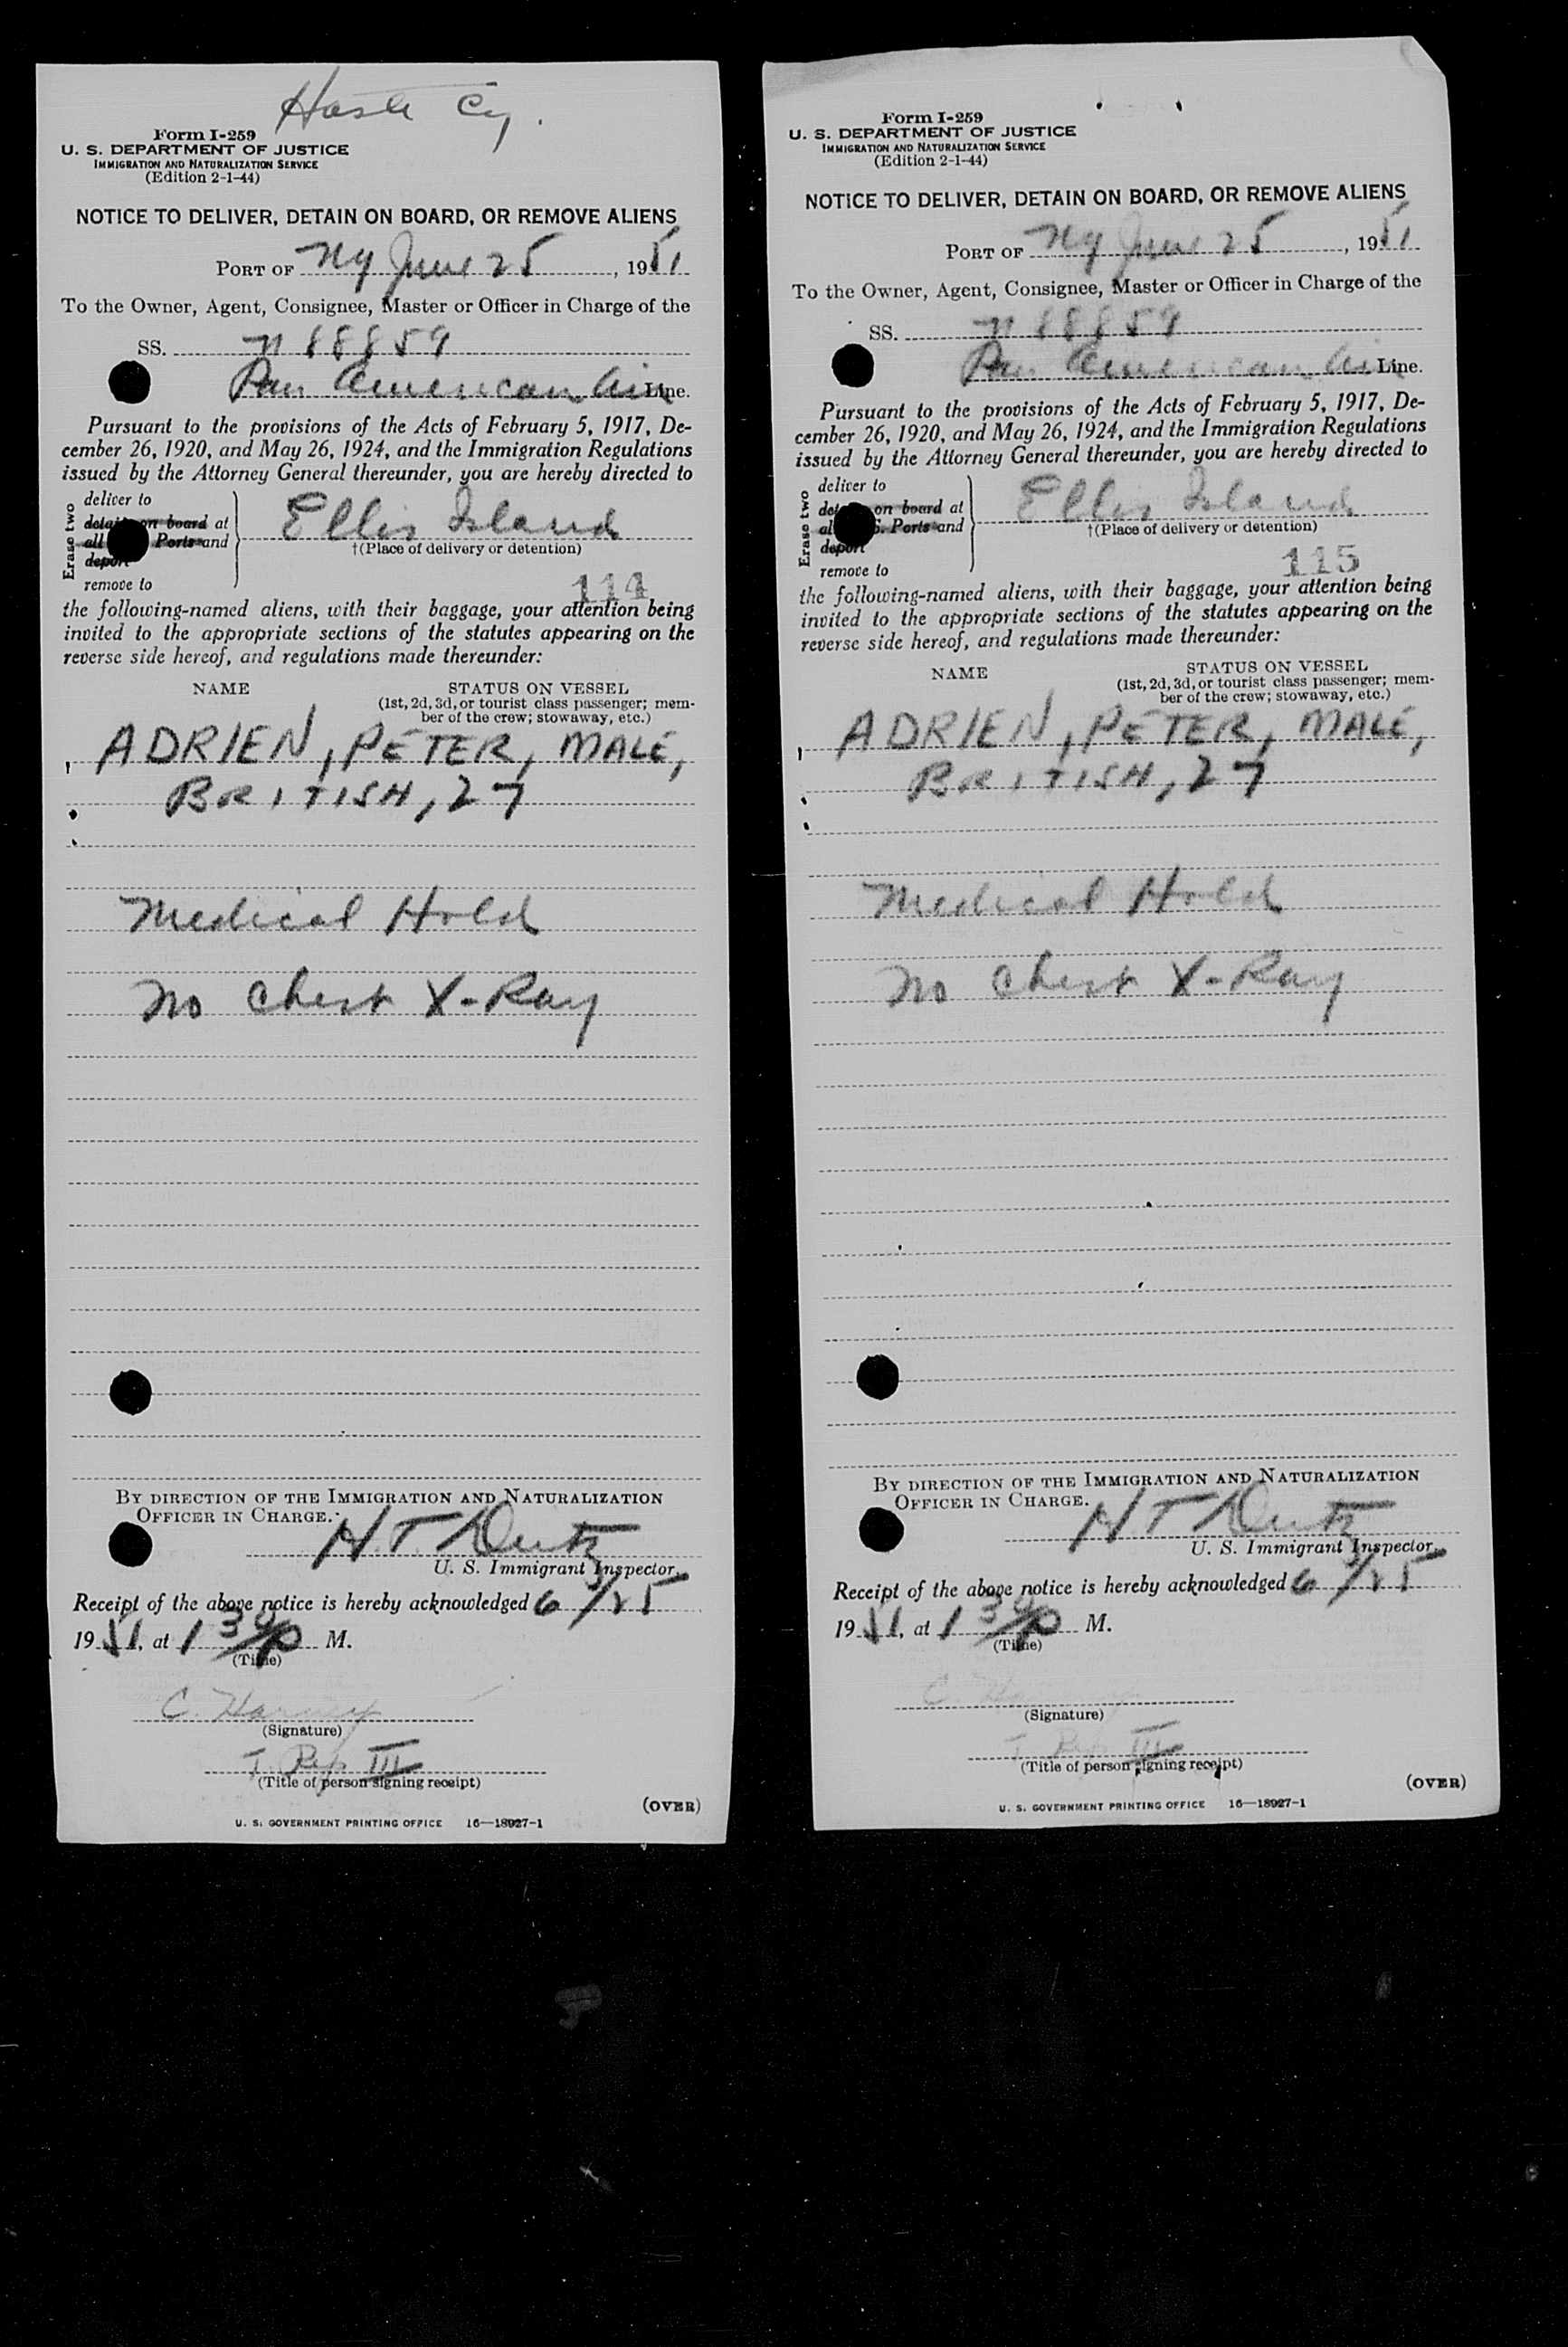 Form I-259
U. S. DEPARTMENT OF JUSTICE
IMMIGRATION AND NATURALIZATION SERVICE
(Edition 2-1-44)
NOTICE TO DELIVER, DETAIN ON BOARD, OR REMOVE ALIENS
PORT OF NY June 25, 1951
To the Owner, Agent, Consignee, Master or Officer in Charge of the
SS. N 88859
Pan American Air Line.
Pursuant to the provisions of the Acts of February 5, 1917, De-
cember 26, 1920, and May 26, 1924, and the Immigration Regulations
issued by the Attorney General thereunder, you are hereby directed to
Erase two
deliver to
on board at
all Ports and
deport
remove to
Ellis Island
†(Place of delivery or detention)
114
the following-named aliens, with their baggage, your attention being
invited to the appropriate sections of the statutes appearing on the
reverse side hereof, and regulations made thereunder:
NAME STATUS ON VESSEL
(1st, 2d, 3d, or tourist class passenger; mem-
ber of the crew; stowaway, etc.)
ADRIEN, PETER, MALE,
BRITISH, 27
Medical Hold
No Chest X-Ray
BY DIRECTION OF THE IMMIGRATION AND NATURALIZATION
OFFICER IN CHARGE.
H.T.
U. S. Immigrant Inspector.
Receipt of the above notice is hereby acknowledged 6/25
1951, at 1 30/p M.
(Time)
C.
(Signature)
T. Rep III
(Title of person signing receipt)
(OVER)
U. S. GOVERNMENT PRINTING OFFICE 16—18927-1
Form I-259
U. S. DEPARTMENT OF JUSTICE
IMMIGRATION AND NATURALIZATION SERVICE
(Edition 2-1-44)
NOTICE TO DELIVER, DETAIN ON BOARD, OR REMOVE ALIENS
PORT OF NY June 25, 1951
To the Owner, Agent, Consignee, Master or Officer in Charge of the
SS. N 88859
Pan American Air Line.
Pursuant to the provisions of the Acts of February 5, 1917, De-
cember 26, 1920, and May 26, 1924, and the Immigration Regulations
issued by the Attorney General thereunder, you are hereby directed to
Erase two
deliver to
on board at
Ports and
deport
remove to
Ellis Island
†(Place of delivery or detention)
115
the following-named aliens, with their baggage, your attention being
invited to the appropriate sections of the statutes appearing on the
reverse side hereof, and regulations made thereunder:
NAME STATUS ON VESSEL
(1st, 2d, 3d, or tourist class passenger; mem-
ber of the crew; stowaway, etc.)
ADRIEN, PETER, MALE,
BRITISH, 27
Medical Hold
No Chest X-Ray
BY DIRECTION OF THE IMMIGRATION AND NATURALIZATION
OFFICER IN CHARGE.
H T
U. S. Immigrant Inspector.
Receipt of the above notice is hereby acknowledged 6/25
1951, at 1 30/p M.
(Time)
C.
(Signature)
T. Rep III
(Title of person signing receipt)
(OVER)
U. S. GOVERNMENT PRINTING OFFICE 16—18927-1